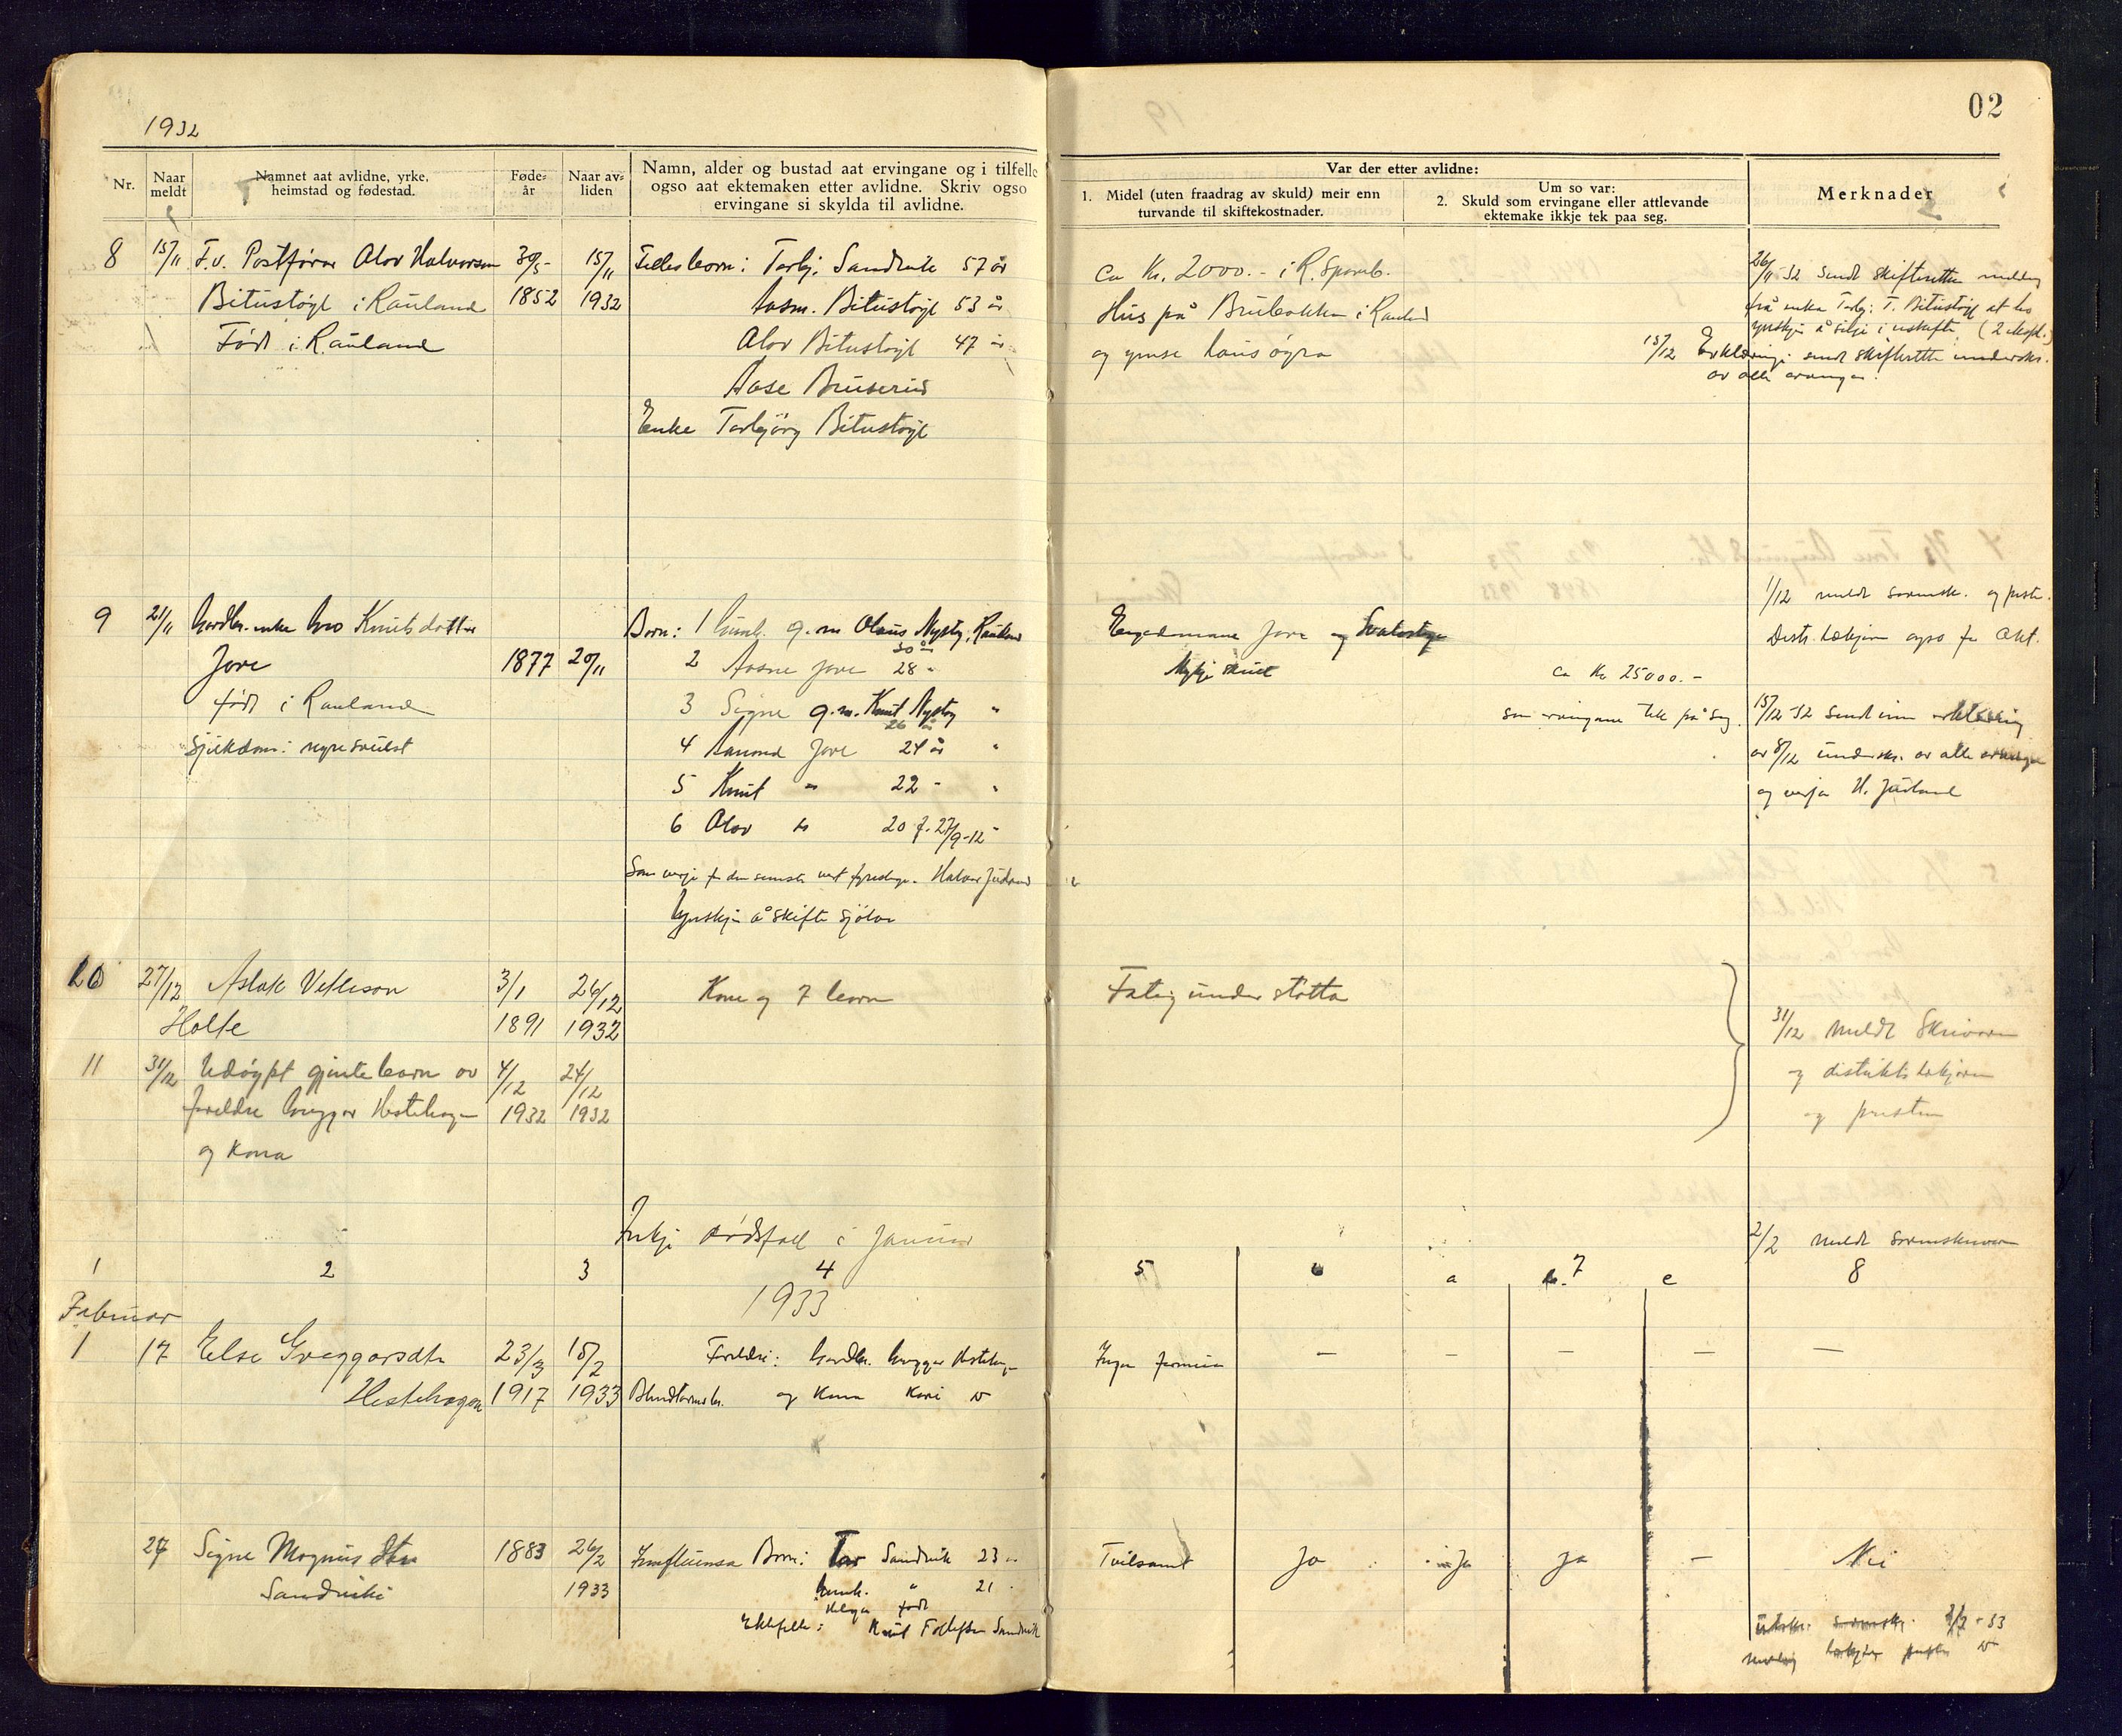 1932
02
Nr.
Naar meldt
Namnet aat avlidne, yrke, heimstad og fødestad.
Føde-år
Naar av-liden
Namn, alder og bustad aat ervingane og i tilfelle
ogso aat ektemaken etter avlidne. Skriv ogso
ervingane si skylda til avlidne.
Var der etter avlidne:
1. Midel (uten fraadrag av skuld) meir enn
turvande til skiftekostnader.
Um so var:
2. Skuld som ervingane eller attlevande
ektemake ikkje tek paa seg.
Merknader
8 15/11 F.v. Postførar Olov Halvorsen 30/5 15/11 Fellesborn: Torbj. Sandvik 57 år
Bitustøyl i Rauland 1852 1932 Aasm. Bitustøyl 53 år
Født i Rauland Olov Bitustøyl 47 år
Aase Bruserud
Enke Torbjørg Bitustøyl
ca Kr. 2000.- i R. Spareb.
Hus på Brubakken i Rauland
og ymse lausøyra
26/11-32 sendt skifteretten melding
frå enka Torbj. T. Bitustøyl at ho
ynskjer å sitja i uskifte (2 ekspl.)
15/12 Erklæring sendt skifteretten undersk.
av alle arvingar.
9 21/11 Gardbr. enke Gro Knutsdotter
Jore 1877 20/11
født i Rauland
Sjukdom: nyresvulst
Born: 1 Gunh. g.m. Olaus Nystog, Rauland
30 år
2 Aasne Jore 28 "
3 Signe g.m. Knut Nystog "
26 år
4 Aamund Jore 24 år "
5 Knut " 22 - "
6 Olov " 20 f. 27/9-12 -
Som verje for den seinste vert fyreslege. Halvor Juvland
Ynskjer å skifte sjølve
Eigedomane Jore og
Mykje skuld
ca Kr 25000.-
som ervingane tek på seg.
1/12 meldt sorensk. og prest.
Distr. lækjaren ogso for Okt.
15/12 32 sendt inn erklæring
av 8/12 undersk. av alle arvingar
og verja H. Juvland
10 27/12 Aslak Vetleson 3/1 26/12 Kone og 7 born
Holte 1891 1932
Fatig understøtta
11 31/12 Udøypt gjenteborn av 4/12 24/12
foreldre Greggar Hestehagen 1932 1932
og kona
31/12 meldt Skrivaren
og distriktslækjaren
og presten
Inkje dødsfall i Januar
2/2 meldt sorenskrivaren
1 2 3 4 5 6 a b. 7 c 8
1933
Februar
1 17 Else Greggarsdtr 23/3 15/2 Foreldre: Gardbr. Greggar Hestehagen
Hestehagen 1917 1933 Blindtarmsbet. og kona Kari "
Ingen formue — — — — —
27 Signe Magnusdtr 1883 26/2 Innfluensa Born: Tor Sandvik 23 år
Sandviki 1933 Gunh. " 21 -
Helga født
Ektefelle: Knut Tollefsen Sandvik
Tvilsamt Ja Ja Ja — Nei
Utskr. sorenskr. 2/3-33
melding lækjar presten "